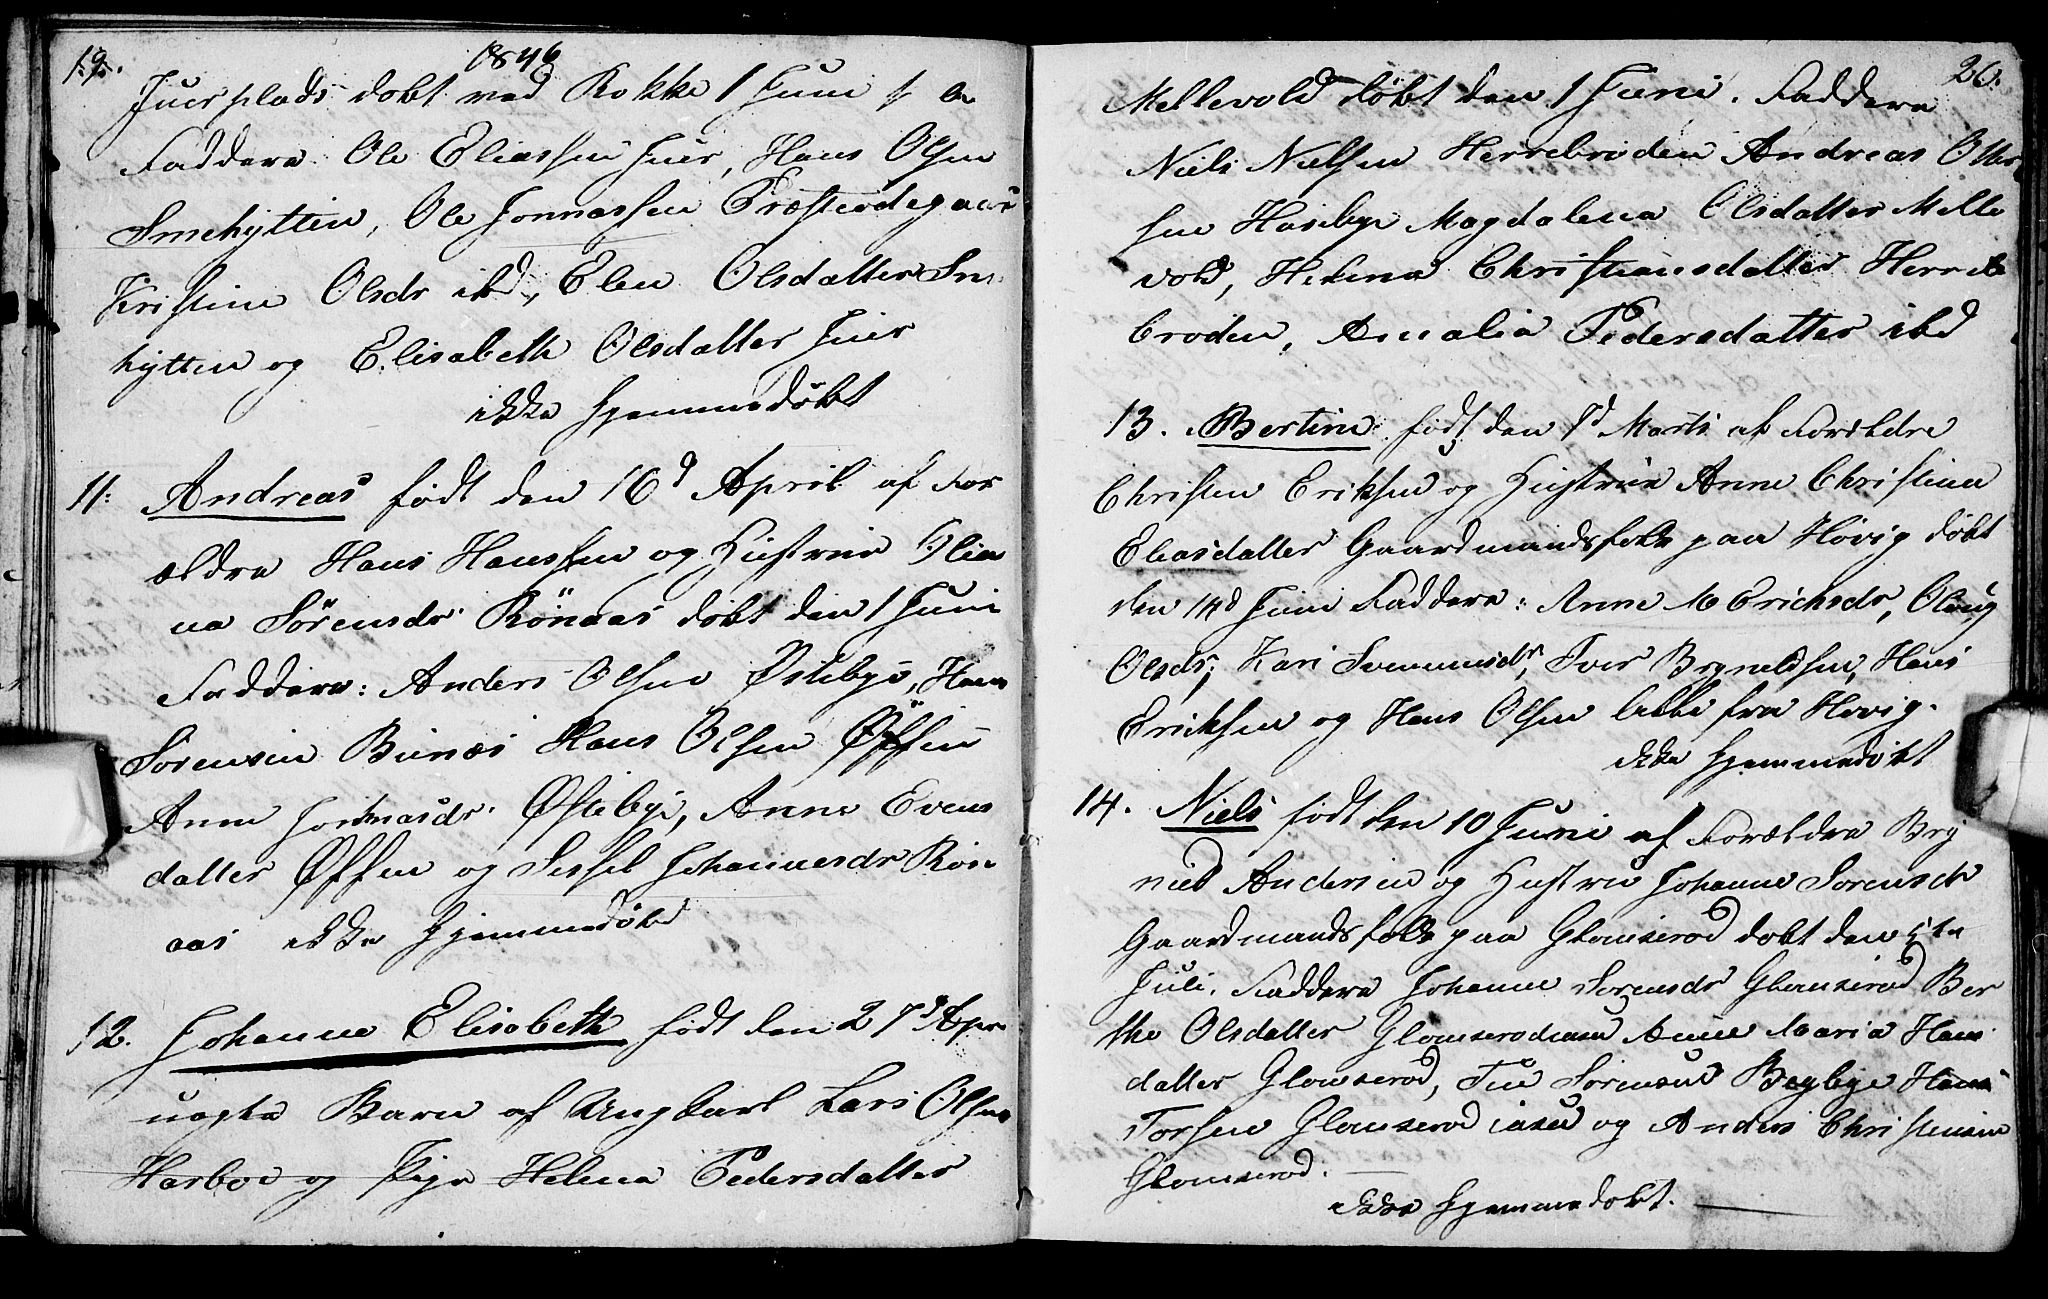 19.
1846
Juerplads døbt ved Rokke 1 Juni
Faddere Ole Eliassen Juer, Hans Olsen
Smehytten, Ole Jonnassen Præsterødegaar
Kristine Olsdr ibd, Elen Olsdatter Sm
hytten og Elisabeth Olsdatter Juer
ikke hjemmedøbt
11: Andreas født den 16d April af For
ældre Hans Hanssen og Hustrue Olia
na Sørensdr Rönaas døbt den 1 Juni
Faddere: Anders Olsen Østebye, Hans
Sørensen Bunæs Hans Olsen Øffsen
Anne Jonnasdr Østebye, Anne Evens
datter Øffsen og Sissel Johannesdr Rön
aas ikke hjemmedøbt
12. Johanne Elisabeth født den 27d Apr
uægte Barn af Ungkarl Lars Olsen
Harboe og Pige Helene Pedersdatter
20.
Mellevold døbt den 1 Juni. Faddere
Niels Nielsen Herrebrøden Andreas Otter
sen Hasebye Magdalena Olsdatter Melle
vold, Helena Christiansdatter Herre
brøden, Amalia Pedersdatter ibd
13. Bertine født den 1d Marts af Forældre
Christen Eriksen og Hustrue Anne Christine
Eliasdatter Gaardmandsfolk paa Høvig døbt
den 14d Juni Faddere: Anne M Erichsdr, Olaug
Olsdr, Kari Svennungsdr, Iver Bryneldsen, Hans
Eriksen og Hans Olsen alle fra Høvig.
ikke hjemmedøbt
14. Niels født den 10 Juni af Forældre Bry
nild Andersen og Hustrue Johanne Sørensdr
Gaardmandsfolk paa Glomserød døbt den 5te
Juli. Faddere Johanne Sørensdr Glomserød Ber
the Olsdatter Glomserødeie Anne Maria Hans
datter Glomserød, Sørensen Begbye Hans
Torsen Glomserød og Anders Christensen
Glomserød.
ikke hjemmedøbt.